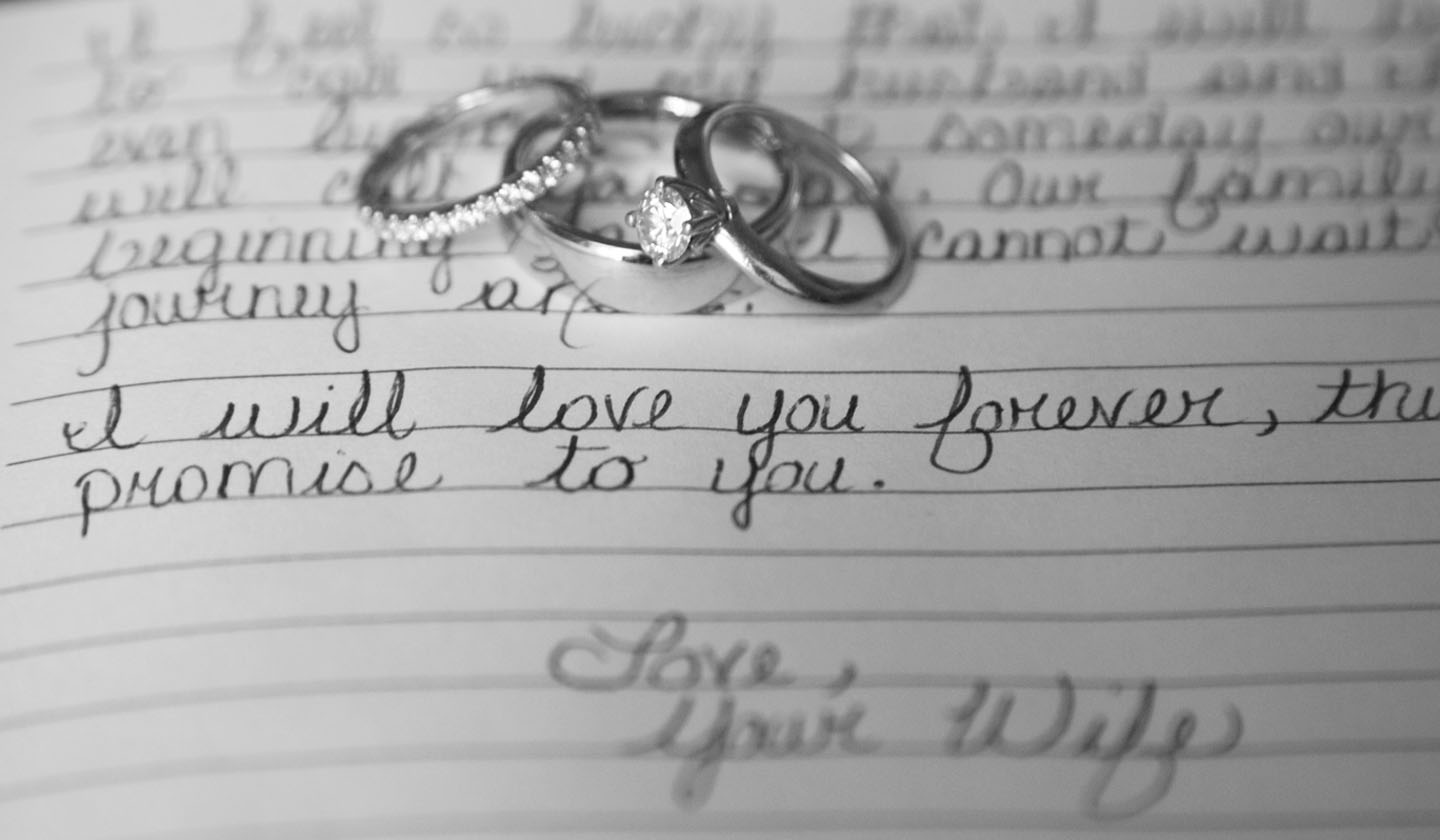 I feel so lucky that I will
to call you my husband and
even someday our
will call Dad. Our family
beginning I cannot wait
journey
I will love you forever, thi
promise to you.
Love,
Your Wife